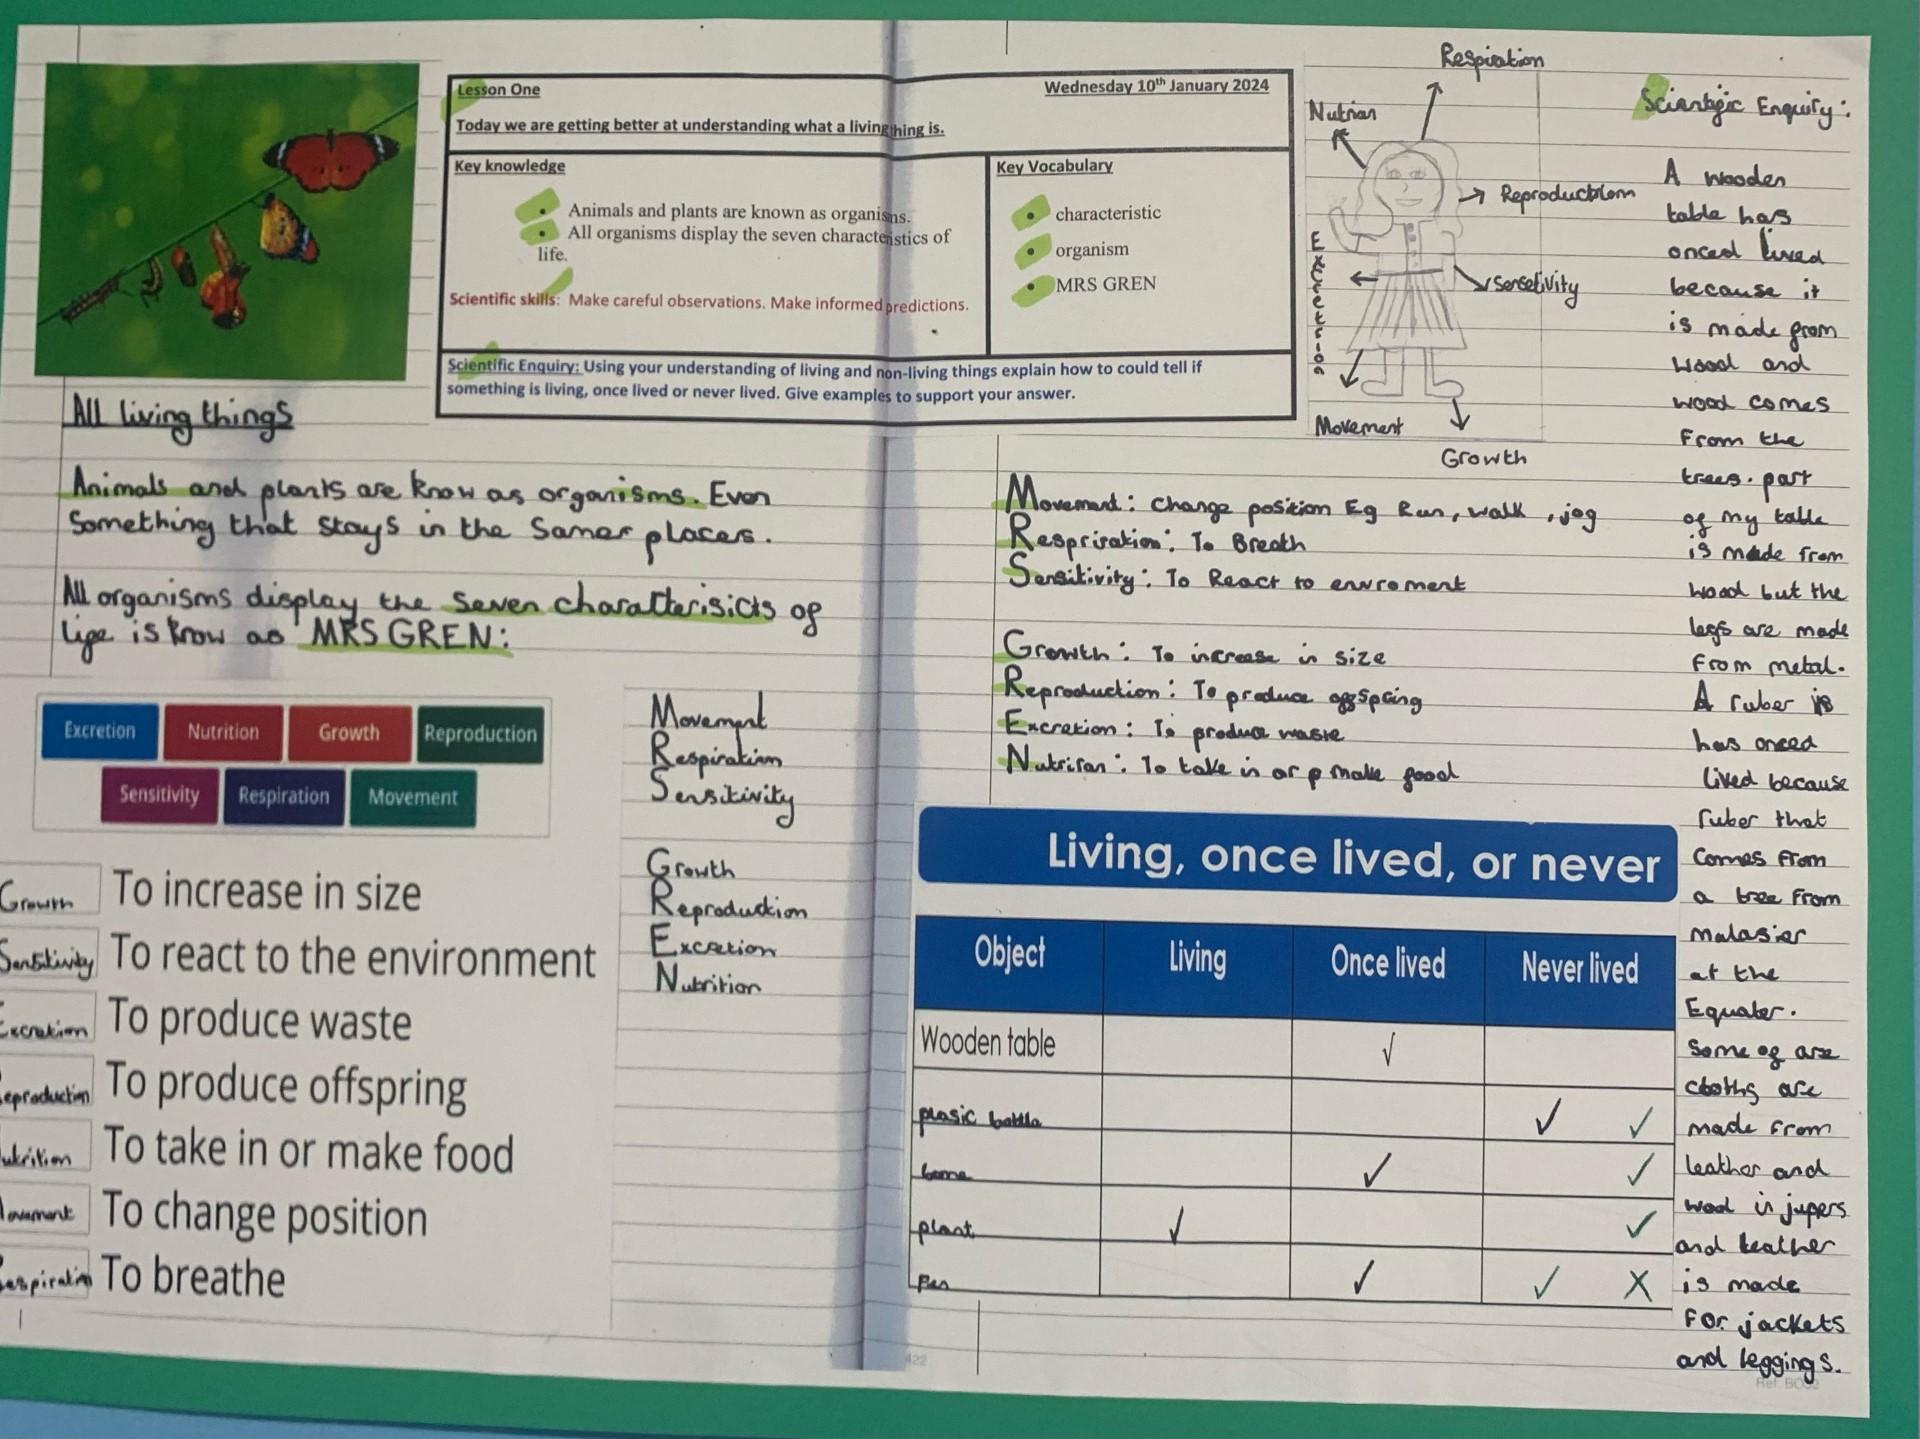 Lesson One
Wednesday 10th January 2024
Today we are getting better at understanding what a living hing is.
Key knowledge
• Animals and plants are known as organisms.
• All organisms display the seven characteristics of
life.
Scientific skills: Make careful observations. Make informed predictions.
Key Vocabulary
• characteristic
• organism
• MRS GREN
Scientific Enquiry: Using your understanding of living and non-living things explain how to could tell if
something is living, once lived or never lived. Give examples to support your answer.
All living things
Animals and plants are know as organisms. Even
Something that stays in the Samer places.
All organisms display the seven characterisicts of
life is know as MRS GREN:
Excretion
Nutrition
Growth
Reproduction
Sensitivity
Respiration
Movement
Growth To increase in size
Sensitivity To react to the environment
Excretion To produce waste
eproduction To produce offspring
utrition To take in or make food
ovement To change position
espiration To breathe
Movement
Respiration
Sensitivity
Growth
Reproduction
Excretion
Nutrition
Respiration
Nutrian
Reproductiom
Sensetivity
Excretion
Movement
Growth
Movement: Change position Eg Run, walk , jog
Respriration: To Breath
Sensitivity: To React to enviroment
Growth: To increase in size
Reproduction: To produce offspring
Excretion: To produce waste
Nutriton: To take in or p make food
Living, once lived, or never
Object Living Once lived Never lived
Wooden table √
plasic bottle ✓ ✓
bone ✓ ✓
plant ✓ ✓
Pen ✓ ✓ X
Scientific Enquiry:
A wooden
table has
onced lived
because it
is made from
wood and
wood comes
From the
trees. part
of my table
is made from
wood but the
legs are made
From metal.
A ruber is
has onced
lived because
ruber that
comes From
a tree From
malasier
at the
Equater.
Some of are
cloths are
made from
leather and
wool in jupers
and leather
is made
For jackets
and leggings.
422